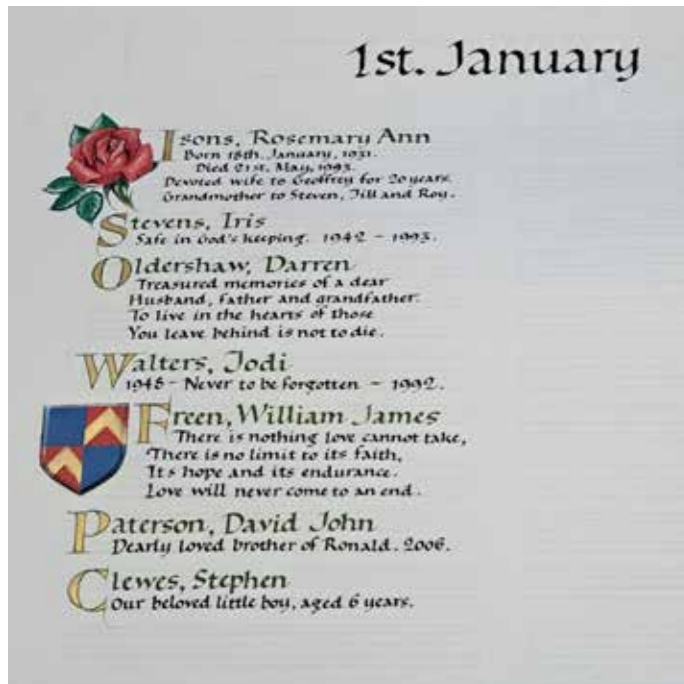 1st. January
Isons, Rosemary Ann
Born 18th. January, 1931.
Died 21st. May, 1993.
Devoted wife to Geoffrey for 20 years.
Grandmother to Steven, Jill and Roy.
Stevens, Iris
Safe in God's keeping. 1942 - 1993.
Oldershaw, Darren
Treasured memories of a dear
Husband, father and grandfather.
To live in the hearts of those
You leave behind is not to die.
Walters, Jodi
1948 - Never to be forgotten - 1992.
Freen, William James
There is nothing love cannot take,
There is no limit to its faith,
Its hope and its endurance.
Love will never come to an end.
Paterson, David John
Dearly loved brother of Ronald. 2006.
Clewes, Stephen
Our beloved little boy, aged 6 years.